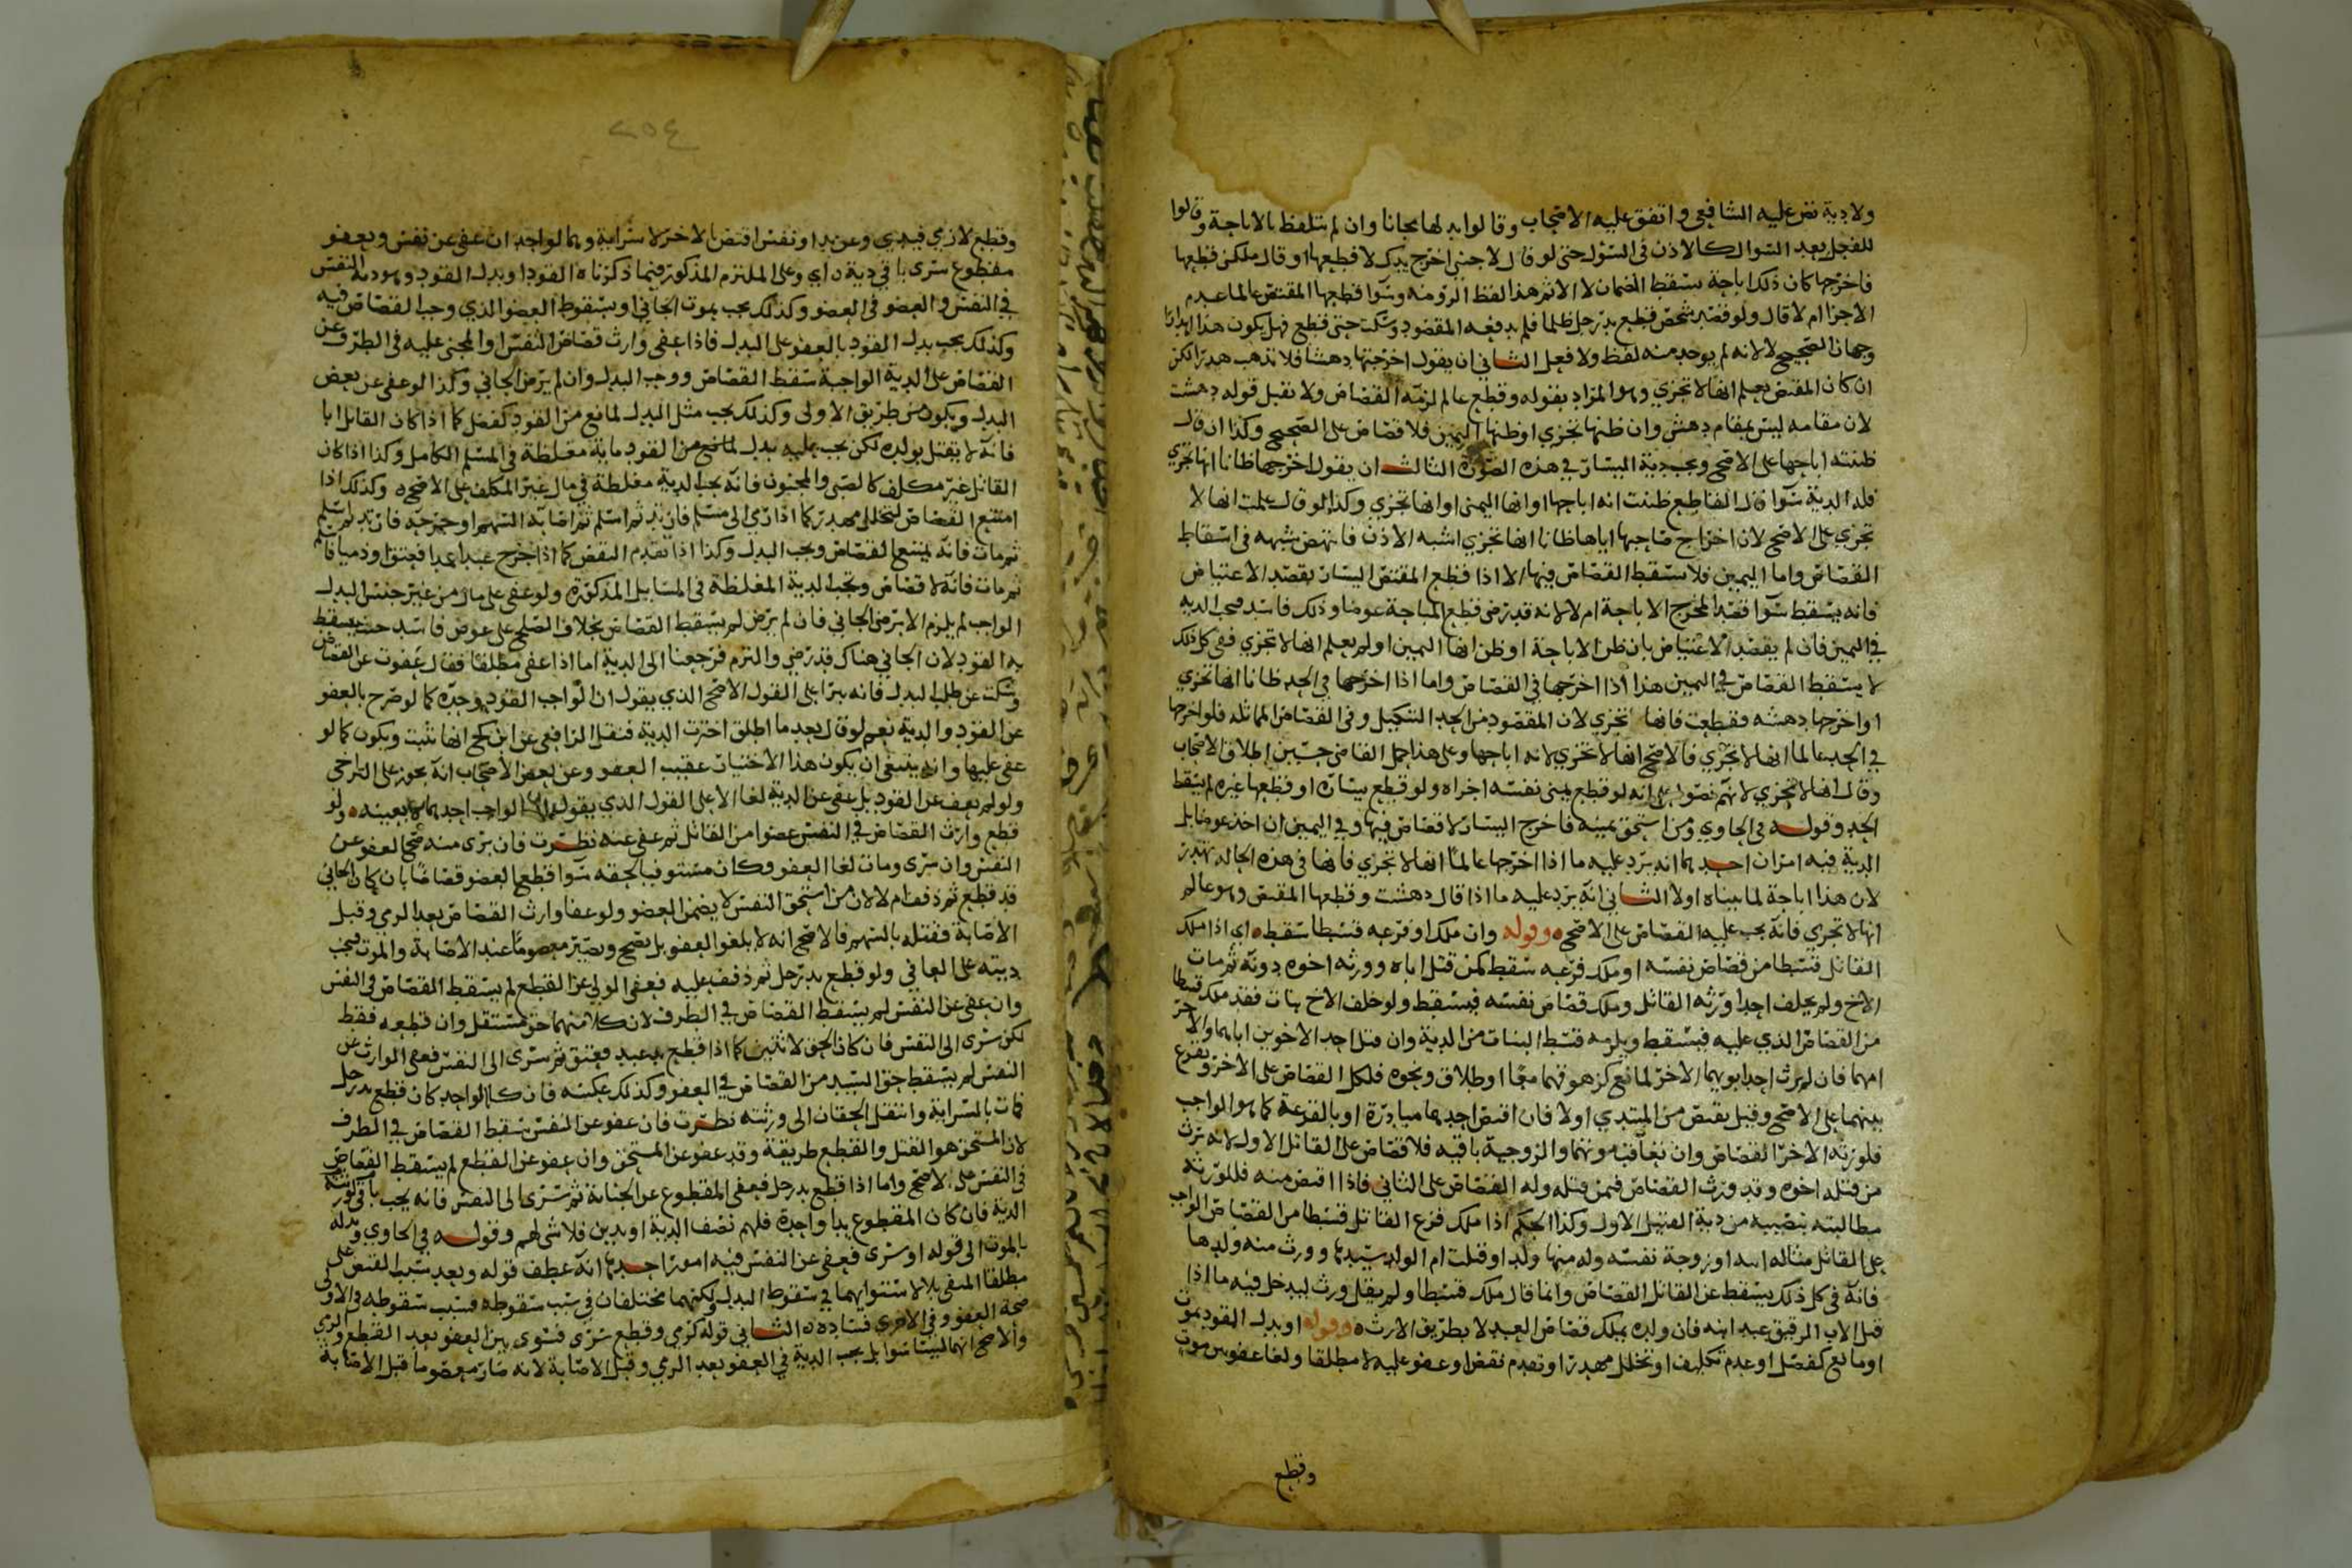 ولا دية نص عليه الشافعي واتفق عليه الاصحاب وقالوا بدلها مجانا وان لم يتلفظ بالاباحة وقالوا
للفعل بعد السوال كالاذن في السؤل حتى لو قال لاجنبي اخرج يدك لاقطعها او قال ملكني قطعها
فاخرجها كان ذلك اباحة يسقط الضمان لا الاثم هذا لفظ الروضه وسوا قطعها المقتص عالما عدم
الاجزا ام لا قال ولو قصد شخص قطع يد رجل ظلما فلم يدفعه المقصود وسكت حتى قطع فهل يكون هذا اهدارا
وجهان الصحيح لا لانه لم يوجد منه لفظ ولا فعل الثاني ان يقول اخرجتها دهشا فلا تذهب هدرا لكن
ان كان المقتص يعلم انها لا تجزي وهو المراد بقوله وقطع عالم لزمه القصاص ولا يقبل قوله دهشت
لان مقامه ليس بمقام دهش وان ظنها تجزي او ظنها اليمين فلا قصاص على الصحيح وكذا ان قال
ظننته اباحها على الاصح ويجب دية اليسار في هذه الصورة الثالث ان يقول اخرجها ظانا انها تجزي
فله الدية سوا قال القاطع ظننت انه اباحها او انها اليمنى او انها تجزي وكذا لو قال علمت انها لا
تجزي على الاصح لان اخراج صاحبها اياها ظانا انها تجزي اشبه الاذن فانتهض شبهه في اسقاط
القصاص واما اليمين فلا يسقط القصاص فيها الا اذا قطع المقتص اليسار بقصد الاعتياض
فانه يسقط سوا قصد المخرج الاباحة ام لا لانه قد رضي قطع المباحة عوضا وذلك فاسد فيجب الدية
في اليمين فان لم يقصد الاعتياض بان ظن الاباحة او ظن انها اليمين او لم يعلم انها لا تجزي ففي كل ذلك
لا يسقط القصاص في اليمين هذا اذا اخرجها في القصاص واما اذا اخرجها في الحد ظانا انها تجزي
او اخرجها بدهشه فقطعت فانها تجزي لان المقصود من الحد التنكيل وفي القصاص المماثله فلو اخرجها
في الحد عالما انها لا تجزي فالاصح انها لا تجزي لانه اباحها وعلى هذا حمل القاضي حسين اطلاق الاصحاب
وقال انها لا تجزي لانهم نصوا على انه لو قطع يمنى نفسه اجزاه ولو قطع يساره او قطعها غيره لم يسقط
الحد وقوله في الحاوي ومن استحق يمينه فاخرج اليسار لا قصاص فيها وفي اليمين ان اخذ عوضا بل
الدية فيه امران احدهما انه يرد عليه ما اذا اخرجها عالما انها لا تجزي فانها في هذه الحاله تهدر
لان هذا اباحة لما بيناه اولا الثاني انه يرد عليه ما اذا قال دهشت وقطعها المقتص وهو عالم
انها لا تجزي فانه يجب عليه القصاص على الاصح ه وقوله وان ملك او فرعه قسطا سقط ه اي اذا ملك
القاتل قسطا من قصاص نفسه او ملك فرعه سقط كمن قتل اباه وورثه اخوه دونه ثم مات
الاخ ولم يخلف احدا ورثه القاتل وملك قصاص نفسه فيسقط ولو خلف الاخ بنات فقد ملك قسطا
من القصاص الذي عليه فيسقط ويلزمه قسط البنات من الدية وان قتل احد الاخوين اباهما والاخر
امهما فان لم يرث احد ابويهما الاخر لمانع كزهوقهما معا او طلاق ونحوه فلكل القصاص على الاخر ويقرع
بينهما على الاصح وقيل يقتص من المبتدي اولا فان اقتص احدهما مبادرة او بالقرعة كما هو الواجب
فلورثه الاخر القصاص وان تعاقب موتهما والزوجية باقيه فلا قصاص على القاتل الاول لانه يرث
من قتله اخوه وقد ورث القصاص فمن قتله وله القصاص على الثاني فاذا اقتص منه فللورثه
مطالبته بنصيبه من دية القتيل الاول وكذا الحكم اذا ملك فرع القاتل قسطا من القصاص الواجب
على القاتل مثاله ابنه او زوجة نفسه وله منها ولد او قتلت ام الولد سيدها وورث منه ولدها
فانه في كل ذلك يسقط عن القاتل القصاص وانما قال ملك قسطا ولم يقل ورث ليدخل فيه ما اذا
قتل الاب الرقيق عبد ابنه فان ولده يملك قصاص العبد لا بطريق الارث ه وقوله او بدل القود بموت
او مانع كفضل او عدم تكليف او تخلل مهدر او تقدم نقض او عفو عليه لا مطلقا ولغا عفو من موت
وقطع
٤٥٤
وقطع لا ذي فيدي وعن يد او نفس اقتص بالاخر لا سراية وهما لواحد ان عفى عن نفس ويعفو
مقطوع سرى باقي دية ه اي وعلى الملتزم المذكور فيما ذكرناه القود او بدل القود وهو دية النفس
في النفس والعضو في العضو وكذلك يجب بموت الجاني او سقوط العضو الذي وجب القصاص فيه
وكذلك يجب بدل القود بالعفو على البدل فاذا عفى وارث قصاص النفس او المجني عليه في الطرف عن
القصاص على الدية الواجبة سقط القصاص ووجب البدل وان لم يرض الجاني وكذا لو عفى عن بعض
البدل ويكون من طريق الاولى وكذلك يجب مثل البدل لمانع من القود كفضل كما اذا كان القاتل ابا
فانه لا يقتل بولده لكن يجب عليه بدل لمانع من القود ماية مغلظة في المسلم الكامل وكذا اذا كان
القاتل غير مكلف كالصبي والمجنون فانه يجب الدية مغلظة في مال غير المكلف على الاصح ه وكذلك اذا
امتنع القصاص لتخلل مهدر كما اذا رمى الى مسلم فارتد ثم اسلم ثم اصابه السهم او جرحه فارتد ثم اسلم
ثم مات فانه يمتنع القصاص ويجب البدل وكذا اذا تقدم النقض كما اذا جرح عبدا عمدا فعتق او ذميا فاسلم
ثم مات فانه لا قصاص وتجب الدية المغلظة في المسايل المذكورة ولو عفى على مال من غير جنس البدل
الواجب لم يلزم الا برضى الجاني فان لم يرض لم يسقط القصاص بخلاف الصلح على عوض فاسد حيث يسقط
به القود لان الجاني هناك قد رضي والتزم فرجعنا الى الدية اما اذا عفى مطلقا فقال عفوت عن القصاص
وسكت عن طلب البدل فانه يبرا على القول الاصح الذي يقول ان الواجب القود وحده كما لو صرح بالعفو
عن القود والدية نعم لو قال بعد ما اطلق اخترت الدية فنقل الرافعي عن ابن كج انها تثبت ويكون كما لو
عفى عليها وانه ينبغي ان يكون هذا الاختيار عقيب العفو وعن بعض الاصحاب انه يجوز على التراخي
ولو لم يعف عن القود بل عفى عن الدية لغا الا على القول الذي يقول الواجب احدهما لا بعينه ه ولو
قطع وارث القصاص في النفس عضوا من القاتل ثم عفى عنه نظرت فان برى منه صح العفو عن
النفس وان سرى ومات لغا العفو وكان مستوفيا لحقه سوا قطع العضو قصاصا بان كان الجاني
قد قطع ثم ذفف ام لا لان من استحق النفس لا يضمن العضو ولو عفا وارث القصاص بعد الرمي وقبل
الاصابة فقتله بالسهم فالاصح انه لا يلغو العفو بل يصح ويصير معصوما عند الاصابة والموت فيجب
ديته على العافي ولو قطع يد رجل ثم ذفف عليه فعفى الولي عن القطع لم يسقط القصاص في النفس
وان عفى عن النفس لم يسقط القصاص في الطرف لان كلا منهما حق مستقل وان قطعه فقط
لكن سرى الى النفس فان كان الحق لاثنين كما اذا قطع يد عبد فعتق ثم سرى الى النفس فعفى الوارث عن
النفس لم يسقط حق السيد من القصاص في العضو وكذلك عكسه فان كانا لواحد كان قطع يد رجل
فمات بالسراية وانتقل الحقان الى ورثته نظرت فان عفو عن النفس سقط القصاص في الطرف
لان المستحق هو القتل والقطع طريقة وقد عفو عن المستحق وان عفو عن القطع لم يسقط القصاص
في النفس على الاصح واما اذا قطع يد رجل فعفى المقطوع عن الجناية ثم سرى الى النفس فانه يجب باقي
الدية فان كان المقطوع يدا واحدة فلهم نصف الدية او يدين فلا شى لهم وقوله في الحاوي وبدله
بالموت الى قوله او سرى فعفى عن النفس فيه امور احدها انه عطف قوله وبعد سبب القتص على
مطلقا المنفي بلا لاستوايهما في سقوط البدل ولكنهما مختلفان في سبب سقوطه فسبب سقوطه في الاولى
صحة العفو وفي الاخرى فساده ه الثاني قوله كرمي وقطع سرى فسوى بين العفو بعد القطع والرمي
والاصح انهما ليسا سوا بل يجب الدية في العفو بعد الرمي وقبل الاصابة لانه صار معصوما قبل الاصابة